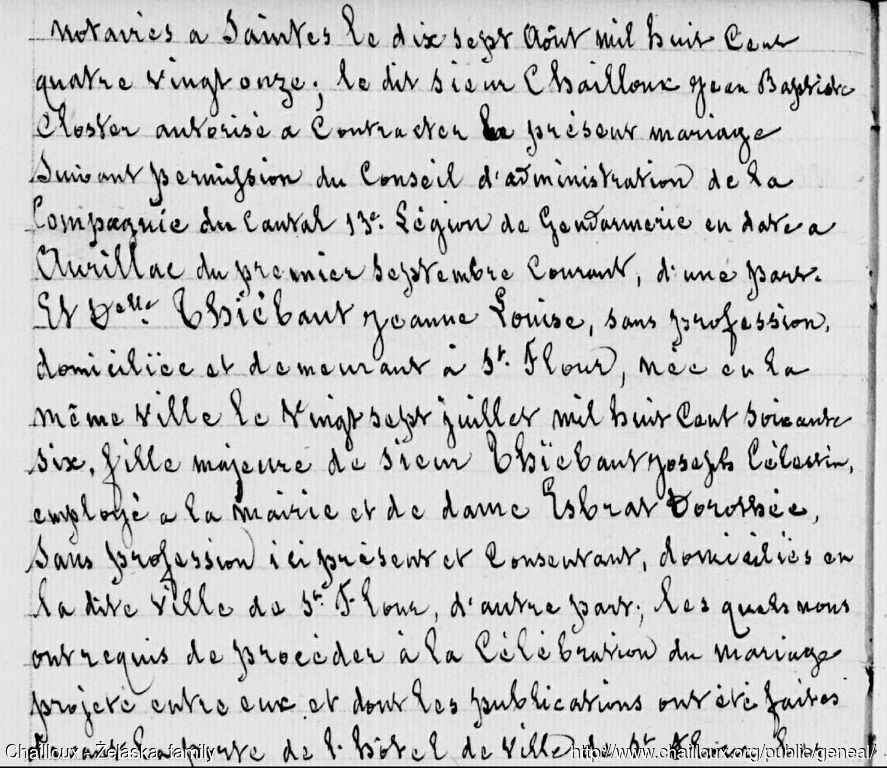 notaires a Saintes le dix sept Août mil huit Cent
quatre vingt onze; le dit sieur Chailloux Jean Baptiste
Closter autorisé a Contracter le présent mariage
Suivant permission du Conseil d'administration de la
Compagnie du Cantal 13e Légion de Gendarmerie en date a
Aurillac du premier septembre Courant, d'une part.
Et Delle Thiébaut Jeanne Louise, sans profession,
domiciliée et demeurant à St. Flour, née en la
même ville le vingt sept juillet mil huit Cent soixante
six, fille majeure de sieur Thiébaut Joseph Célestin,
employé a la mairie et de dame Esbrat Dorothée,
Sans profession ici présent et Consentant, domiciliés en
la dite ville de St. Flour, d'autre part; les quels nous
ont requis de procéder à la Célébration du mariage
projeté entre eux et dont les publications ont été faites
devant la porte de l'hôtel de ville de St. Flour
Chailloux - Zelaska family
http://www.chailloux.org/public/geneal/